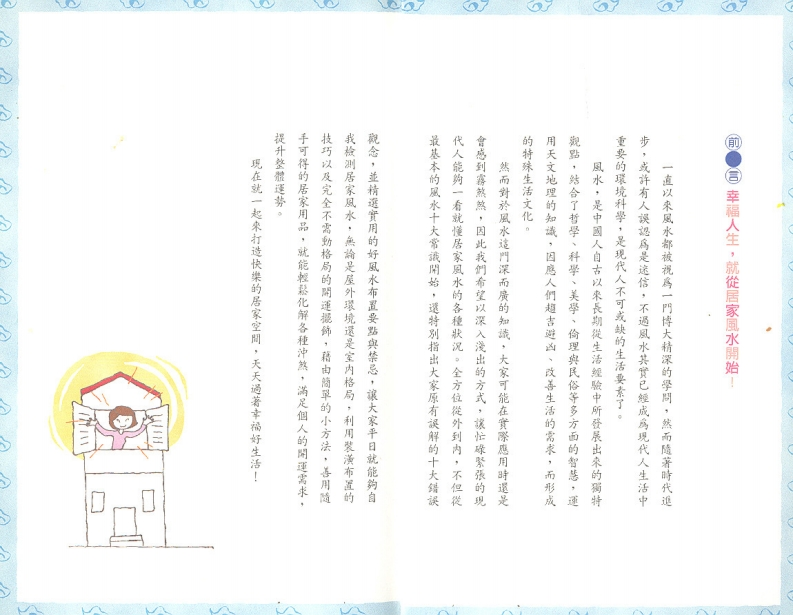 前●言 幸福人生，就從居家風水開始！
一直以來風水都被視為一門博大精深的學問，然而隨著時代進
步，或許有人誤認為是迷信，不過風水其實已經成為現代人生活中
重要的環境科學，是現代人不可或缺的生活要素了。
風水，是中國人自古以來長期從生活經驗中所發展出來的獨特
觀點，結合了哲學、科學、美學、倫理與民俗等多方面的智慧，運
用天文地理的知識，因應人們趨吉避凶、改善生活的需求，而形成
的特殊生活文化。
然而對於風水這門深而廣的知識，大家可能在實際應用時還是
會感到霧煞煞，因此我們希望以深入淺出的方式，讓忙碌緊張的現
代人能夠一看就懂居家風水的各種狀況。全方位從外到內，不但從
最基本的風水十大常識開始，還特別指出大家原有誤解的十大錯誤
觀念，並精選實用的好風水布置要點與禁忌，讓大家平日就能夠自
我檢測居家風水，無論是屋外環境還是室內格局，利用裝潢布置的
技巧以及完全不需動格局的開運擺飾，藉由簡單的小方法，善用隨
手可得的居家用品，就能輕鬆化解各種沖煞，滿足個人的開運需求，
提升整體運勢。
現在就一起來打造快樂的居家空間，天天過著幸福好生活！